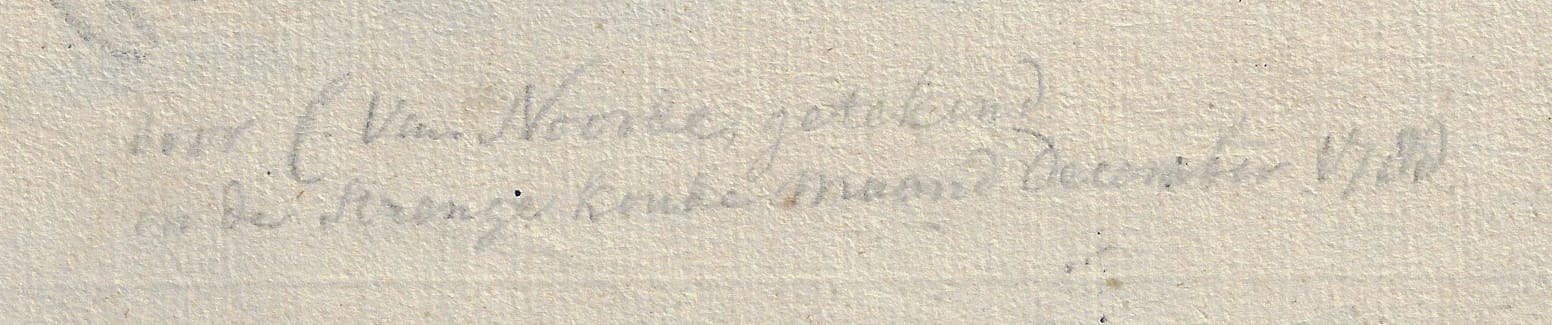 door C. Van Noorde, getekend
in de strenge koude maand December